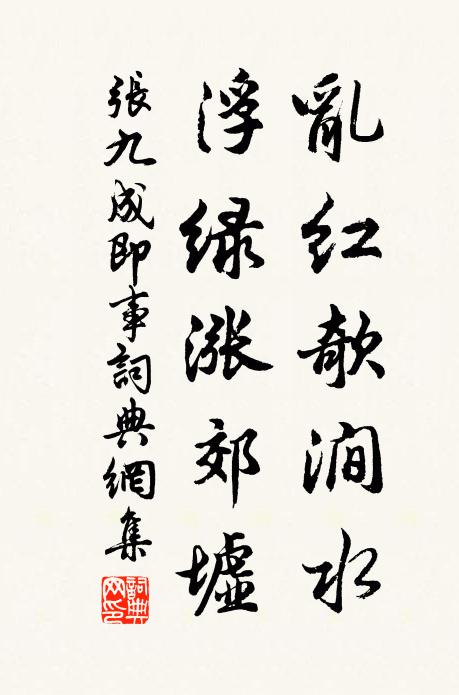 亂紅欹澗水
浮綠漲郊墟
張九成即事詞典網集
詞典網印